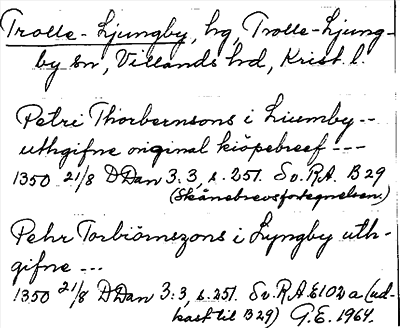 Trolle-Ljungby, hg, Trolle-Ljung-
by sn, Villands hd, Krist. l.
Petri Thorbernsons i Liumby --
uthgifne original kiöpebreef ---
1350 21/8 DDan 3:3, s. 251. Sv. R.A. B 29
(Skånebrevsförtegnelsen.)
Pehr Torbiörnszons i Lyngby uth-
gifne ---
1350 21/8 DDan 3:3, s. 251. Sv. R.A E102a (ud-
kast til B 29) G.E. 1964.